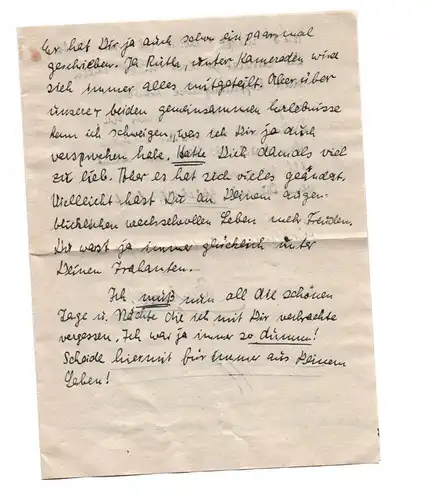 Er hat Dir ja auch schon ein paarmal
geschieben. Ja Ruth, unter Kameraden wird
sich immer alles mitgeteilt. Aber über
unsere beiden gemeinsammen Erlebnisse
kann ich schweigen, was ich Dir ja auch
versprochen habe. Hatte Dich damals viel
zu lieb. Aber es hat sich vieles geändert.
Vielleicht hast Du an Deinem augen-
blicklichen wechselvollen Leben mehr Freuden.
Du warst ja immer glücklich unter
Deinen Trabanten.
Ich muß nun all die schönen
Tage u. Nächte die ich mit Dir verbrachte
vergessen. Ich war ja immer so dumm!
Scheide hiermit für immer aus Deinem
Leben!